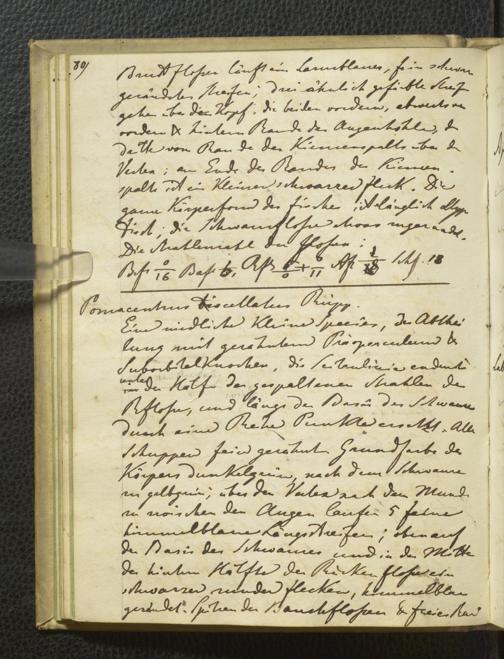 89)
Brustflossen läuft ein Lasurblauer, fein schwarz
geränderter Streifen; drei ähnlich gefärbte Streifen
gehen über den Kopf, die beiden vordern,
vordern & hintern Rande der Augenhöhlen, der
dritte vom Rande der Kiemenspalte über den
am Ende des Randes der Kiemen-
spalte ist ein kleiner schwarzer Fleck. Die
ganze Körperform des Fisches ist länglich
die Schwanzflosse etwas
Die Strahlenzahl der Flossen:
Pomacentrus Rüpp.
Eine niedliche kleine Species, der Abthei
lung mit gezähntem Präoperculum &
Suborbitalknochen, die Seitenlinie endent
unter der Hälfte der gespaltenen Strahlen der
Rflosse, und längs der Basis des Schwanzes
durch eine Reihe Punkte ersetzt. Alle
Schuppen fein gezähnt Grundfarbe des
Körpers dunkelgrün, nach dem Schwanze
zu gelbgrün; über den nach dem Munde
zu zwischen den Augen laufen 5 feine
himmelblaue Längsstreifen; oben auf
der Basis des Schwanzes und in der Mitte
der hintern Hälfte der Rückenflosse ein
schwarzer runder flecken, himmelblau
gerändet. Spitzen der Bauchflossen & freier Rand